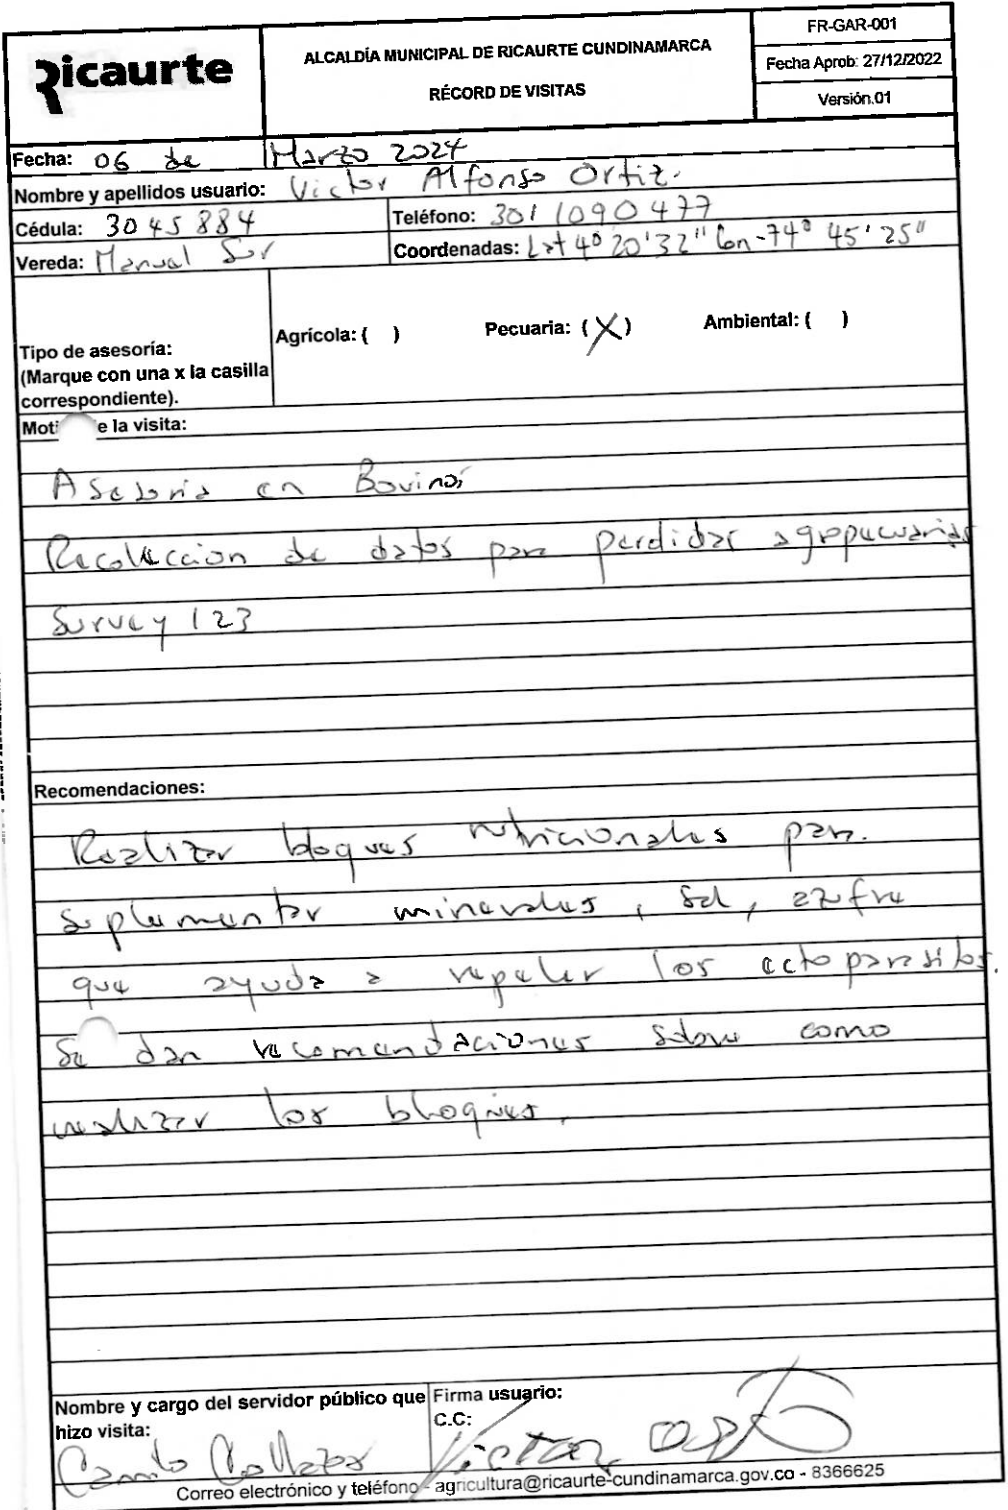 Ricaurte
ALCALDÍA MUNICIPAL DE RICAURTE CUNDINAMARCA
RÉCORD DE VISITAS
FR-GAR-001
Fecha Aprob: 27/12/2022
Versión.01
Fecha: 06 de Marzo 2024
Nombre y apellidos usuario: Victor Alfonso Ortiz.
Cédula: 3045884
Teléfono: 3011090477
Vereda: Manuel Sur
Coordenadas: Lat 4° 20' 32" Lon -74° 45' 25"
Tipo de asesoría:
(Marque con una x la casilla
correspondiente).
Agrícola: ( ) Pecuaria: (X) Ambiental: ( )
Moti e la visita:
Asesoria en Bovinos
Recoleccion de datos para perdidas agropecuarias
Survey 123
Recomendaciones:
Realizar bloques nutricionales para.
suplementar minerales, sal, azufre
que ayuda a repeler los ectoparasitos.
Se dan recomendaciones sobre como
realizar los bloques.
Nombre y cargo del servidor público que
hizo visita:
Camilo Collazos
Firma usuario:
C.C:
Victor
Correo electrónico y teléfono - agricultura@ricaurte-cundinamarca.gov.co - 8366625